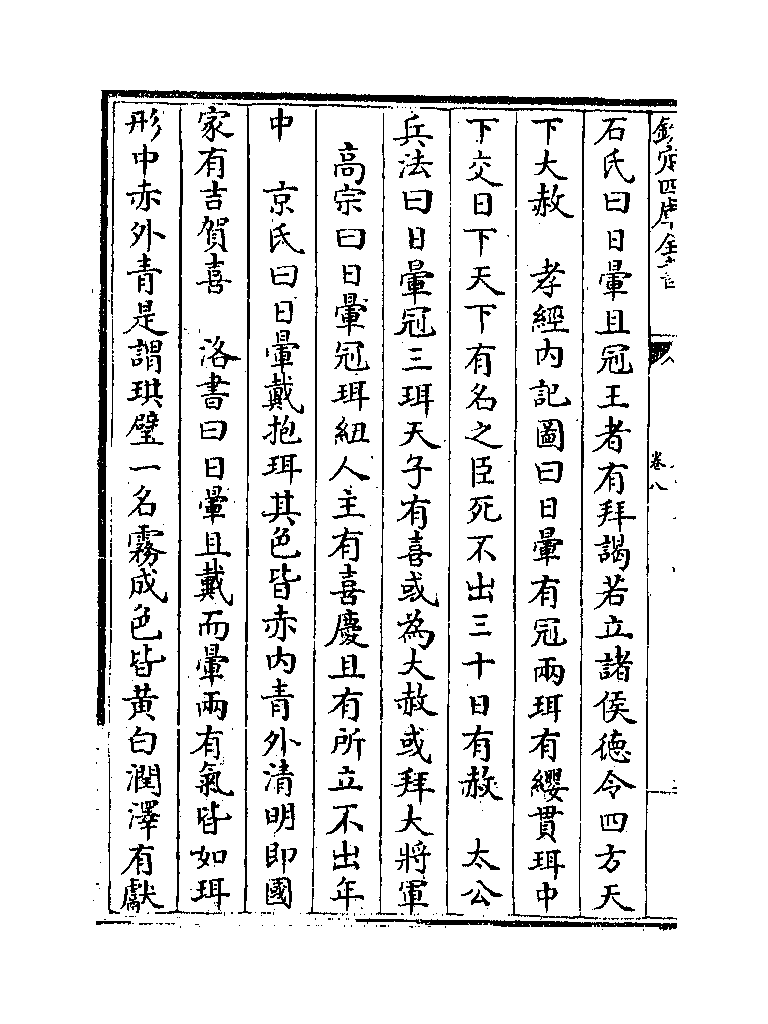 欽定四庫全書
卷八
石氏曰日暈且冠王者有拜謁若立諸侯德令四方天
下大赦　孝經內記圖曰日暈有冠兩珥有纓貫珥中
下交日下天下有名之臣死不出三十日有赦　太公
兵法曰日暈冠三珥天子有喜或為大赦或拜大將軍
高宗曰日暈冠珥紐人主有喜慶且有所立不出年
中　京氏曰日暈戴抱珥其色皆赤內青外清明即國
家有吉賀喜　洛書曰日暈且戴而暈兩有氣皆如珥
形中赤外青是謂珙璧一名霧成色皆黃白潤澤有獻